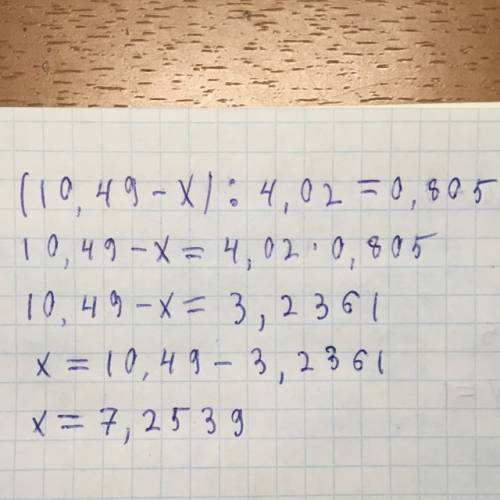 (10,49-x):4,02=0,805
10,49-x=4,02·0,805
10,49-x=3,2361
x=10,49-3,2361
x=7,2539